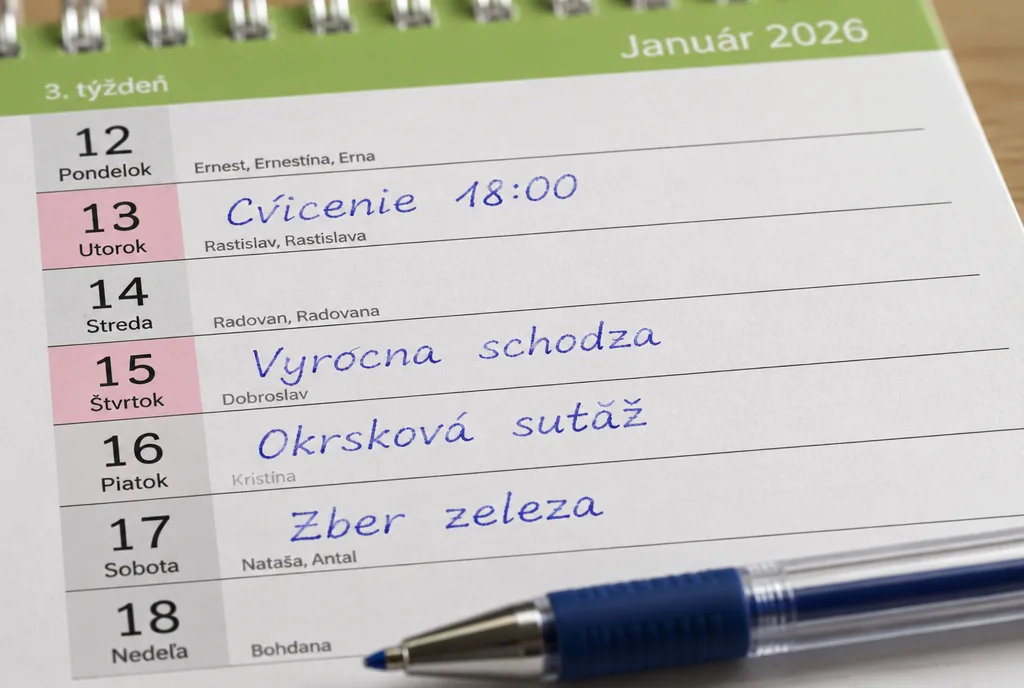 Január 2026
3. týždeň
12
Pondelok
Ernest, Ernestína, Erna
13
Utorok
Cvicenie 18:00
Rastislav, Rastislava
14
Streda
Radovan, Radovana
15
Štvrtok
Vyrócna schodza
Dobroslav
16
Piatok
Okrsková sutăž
Kristína
17
Sobota
Zber zeleza
Nataša, Antal
18
Nedeľa
Bohdana